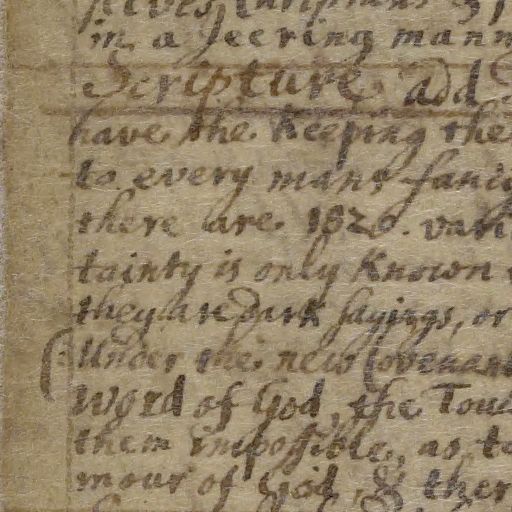 selves, Scriptians &
in a Jeering mann
Scripture add
have the Keeping the
to every mans fancy
there are 1820. vari
tainty is only Known
they are dark sayings, or
Under the new Covenant
Word of God, the Touc
them impossible, as to
mour of God, & ther